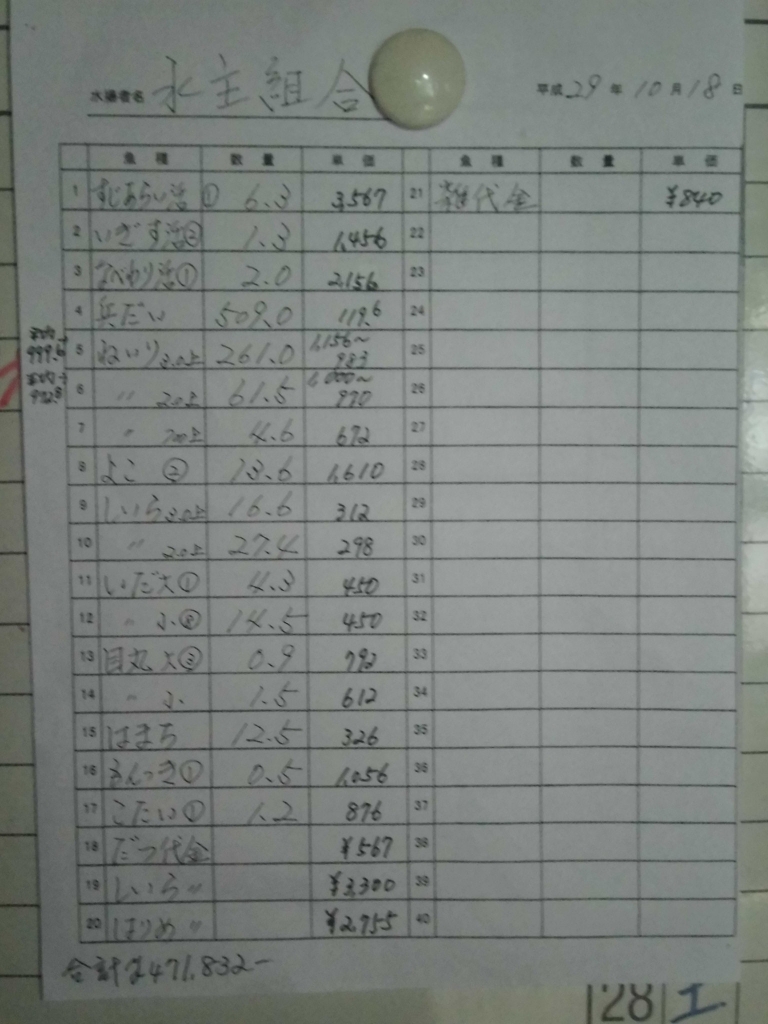 水揚者名 水主組合 平成29年10月18日
魚種 数量 単価 魚種 数量 単価
1 すじあらい活① 6.3 3,567 21 雑代金 ¥840
2 いぎす活② 1.3 1,456 22
3 なべわり活① 2.0 2,156 23
4 兵だい 509.0 119.6 24
平均→999.6 5 ねいり3.0上 261.0 1,156~983 25
平均→972.8 6 〃 2.0上 61.5 1,000~970 26
7 〃 700上 4.6 672 27
8 よこ ② 13.6 1,610 28
9 しいら3.0上 16.6 312 29
10 〃 2.0上 27.4 298 30
11 いだ大① 4.3 450 31
12 〃 小⑧ 14.5 450 32
13 目丸大③ 0.9 792 33
14 〃 小 1.5 612 34
15 はまち 12.5 326 35
16 もんつき① 0.5 1,056 36
17 こだい① 1.2 876 37
18 だつ代金 ¥567 38
19 しいら〃 ¥3,300 39
20 はりめ〃 ¥2,755 40
合計¥471,832-
28 工